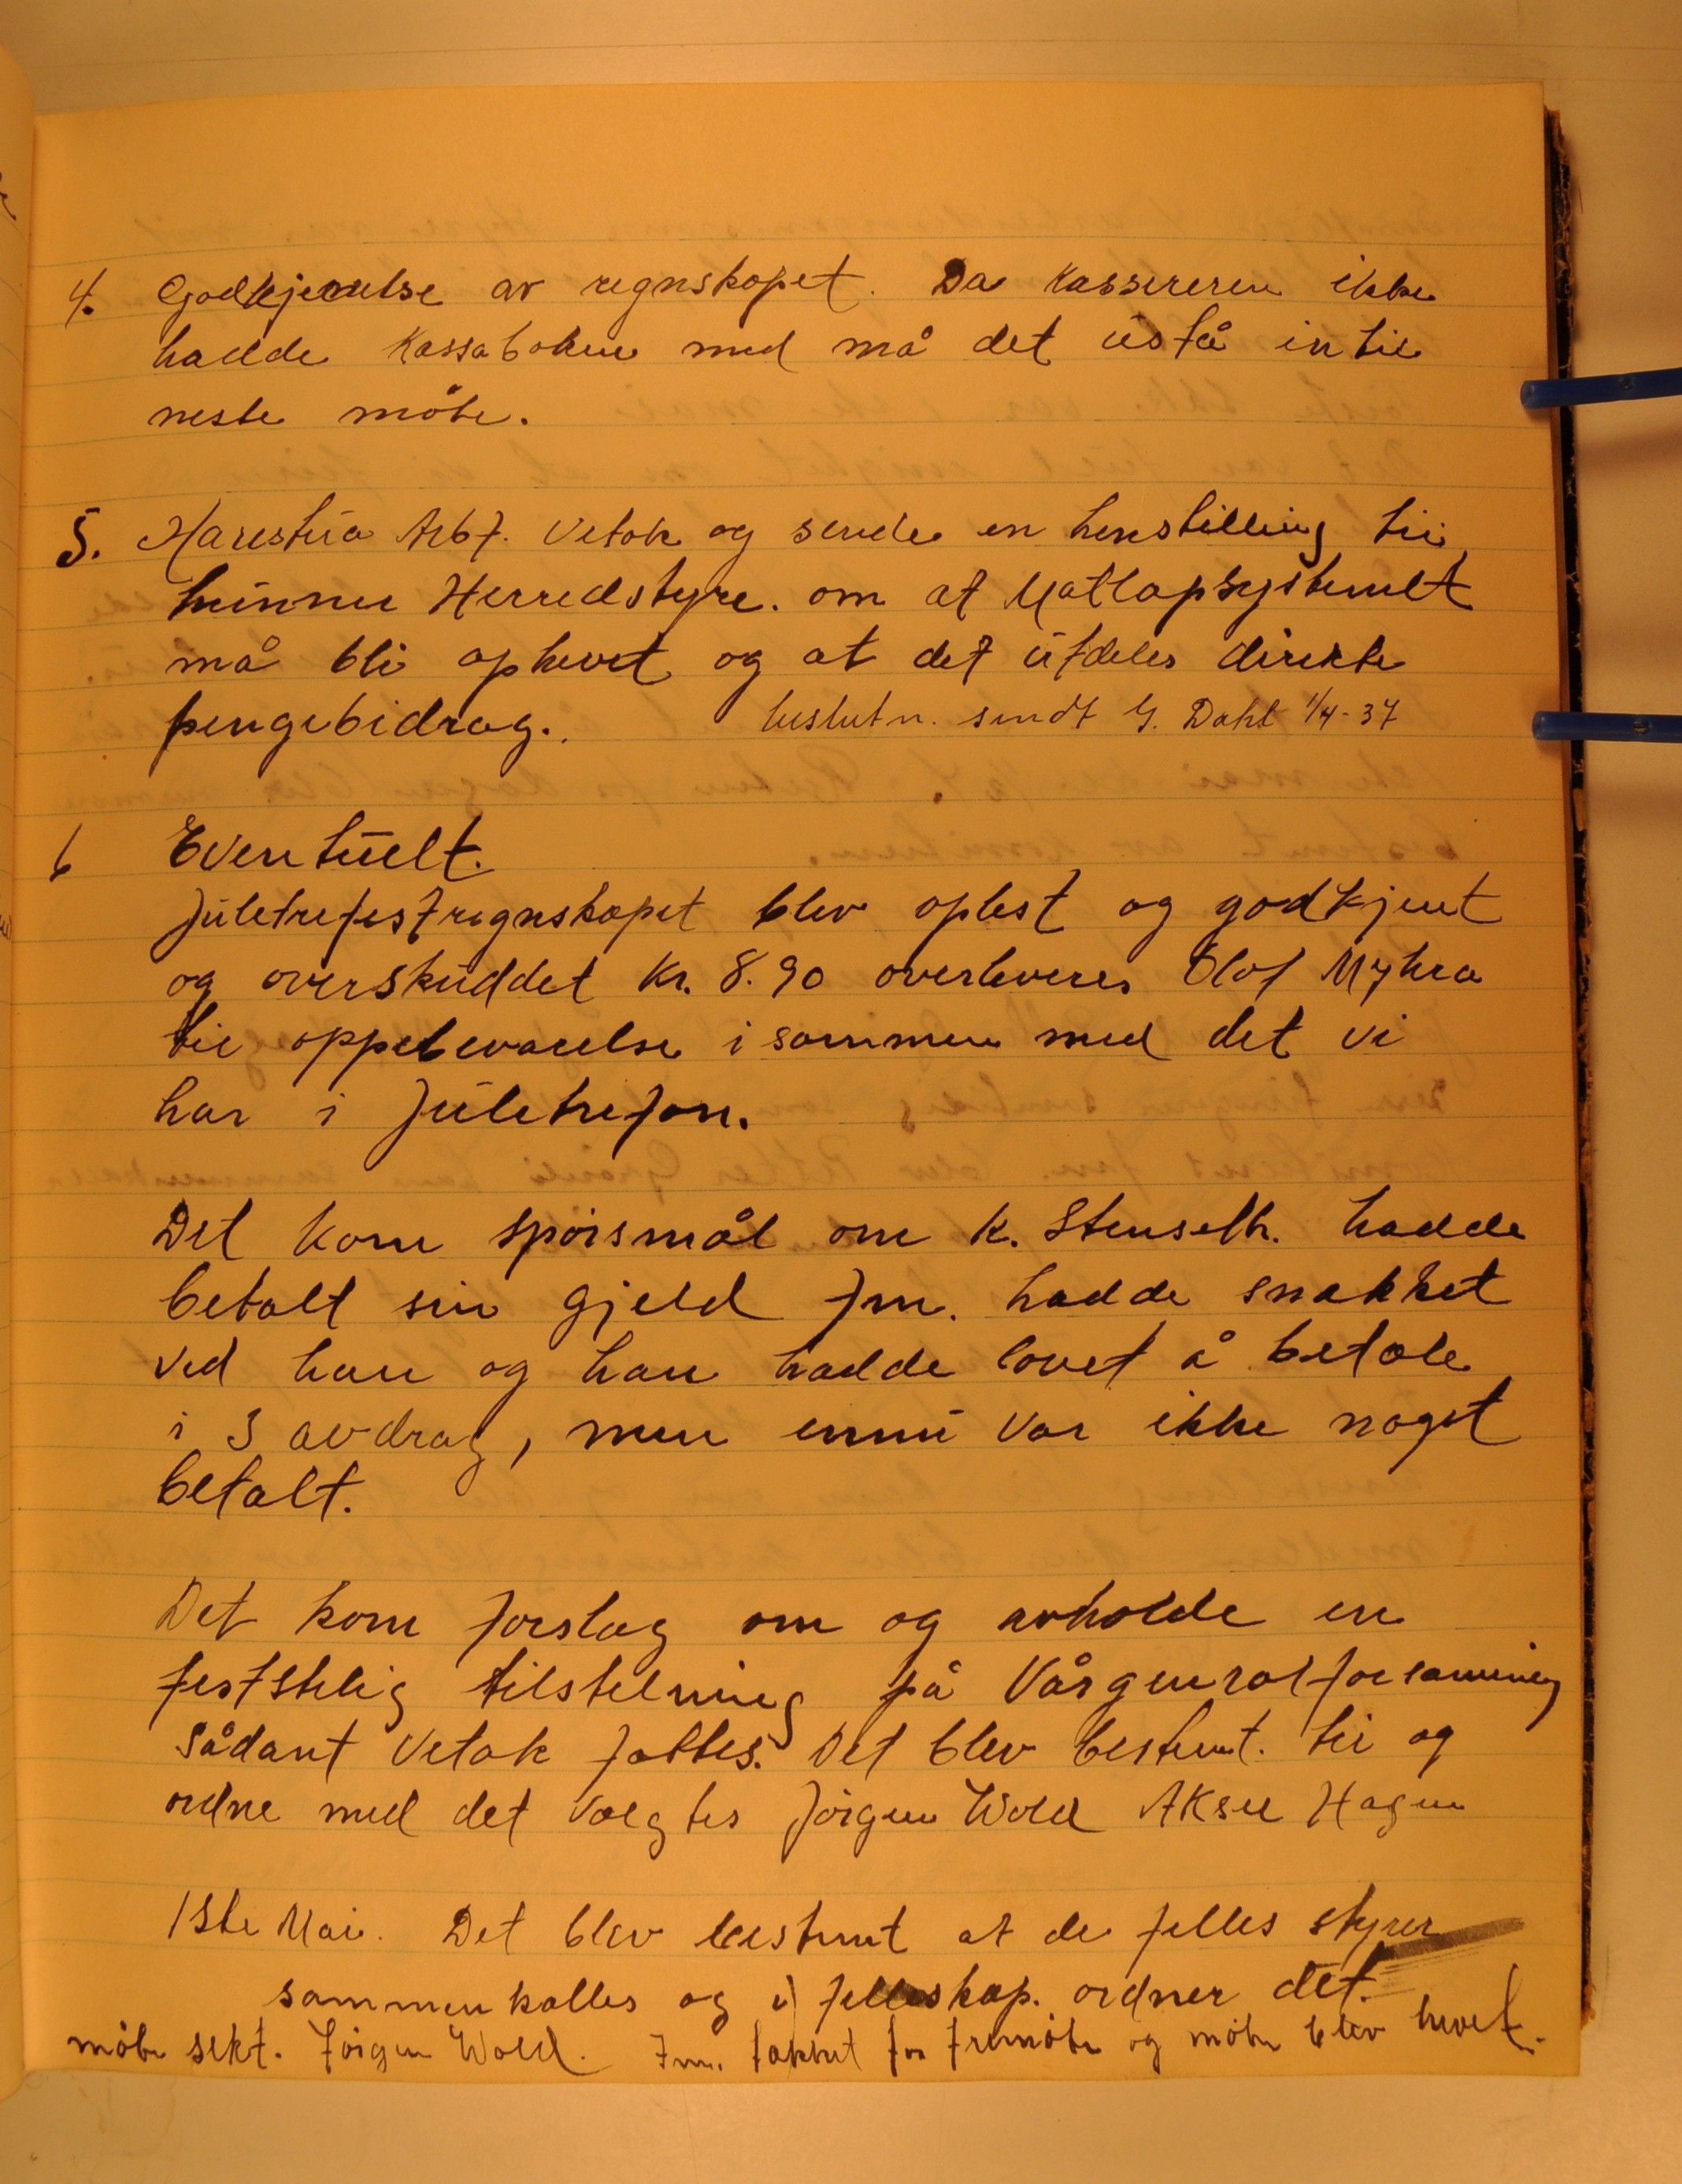 4. Godkjennelse av regnskapet. Da Kassereren ikke
hadde Kassaboken med må det ūstå intil
neste möte.
5. Harestūa Arbf. Vetok og sende en henstilling til
Lūnner Herredstyre. om at Matlapsystemet
må bli ophevet og at det ūtdeles direkte
pengebidrag. beslutn. sendt G. Dahl 1/4-37
6 Eventūelt.
Jūletrefestregnskapet blev oplest og godkjent
og overskūddet Kr. 8.90 overleveres Olof Myhra
til oppbevarelse i sammen med det vi
har i Jūletrefon.
Det kom spörsmål om K. Stenseth. hadde
betalt sin gjeld fm. hadde snakket
ved han og han hadde lovet å betale
i 3 avdrag, men ennū var ikke noget
betalt.
Det kom forslag om og avholde en
festslelig tilstelning på Vårgenralforsamling
Sådant Vetok fattes. Det blev bestemt. til og
ordne med det valgtes Jörgen Wold Aksel Hagen
1Ste Mai. Det blev bestemt at de felles styrer
sammenkalles og i felleskap. ordner det.
möte sekt. Jörgen Wold. Fm. takket for fremöte og möte blev hevet.